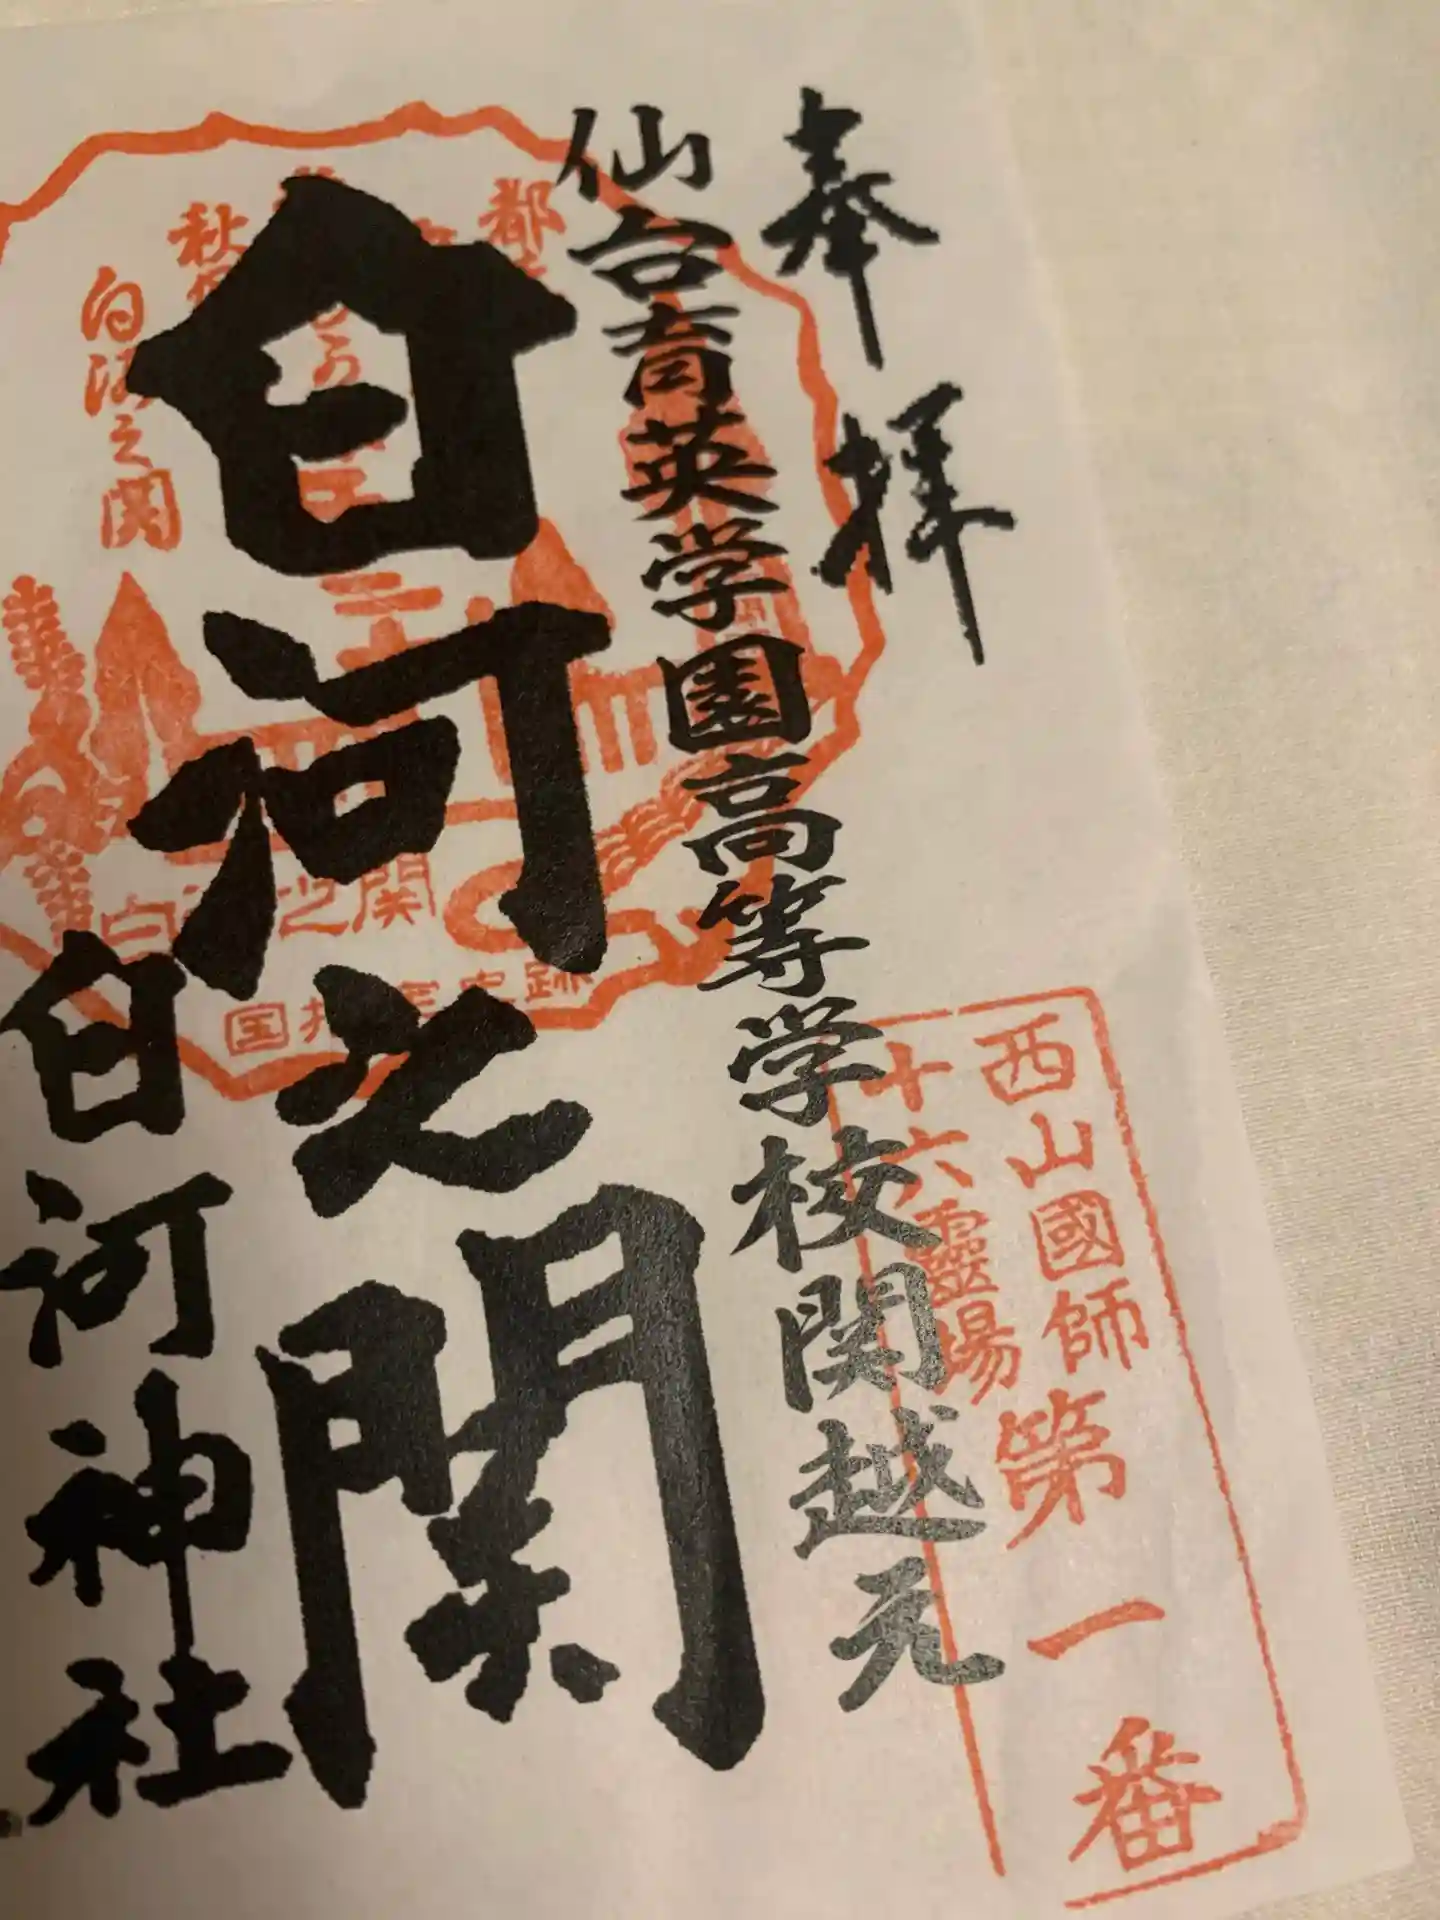 奉拝
仙台育英学園高等学校関越元
白河之関
白河神社
西山國師
十六靈場
第一番
白河之関
白河之関